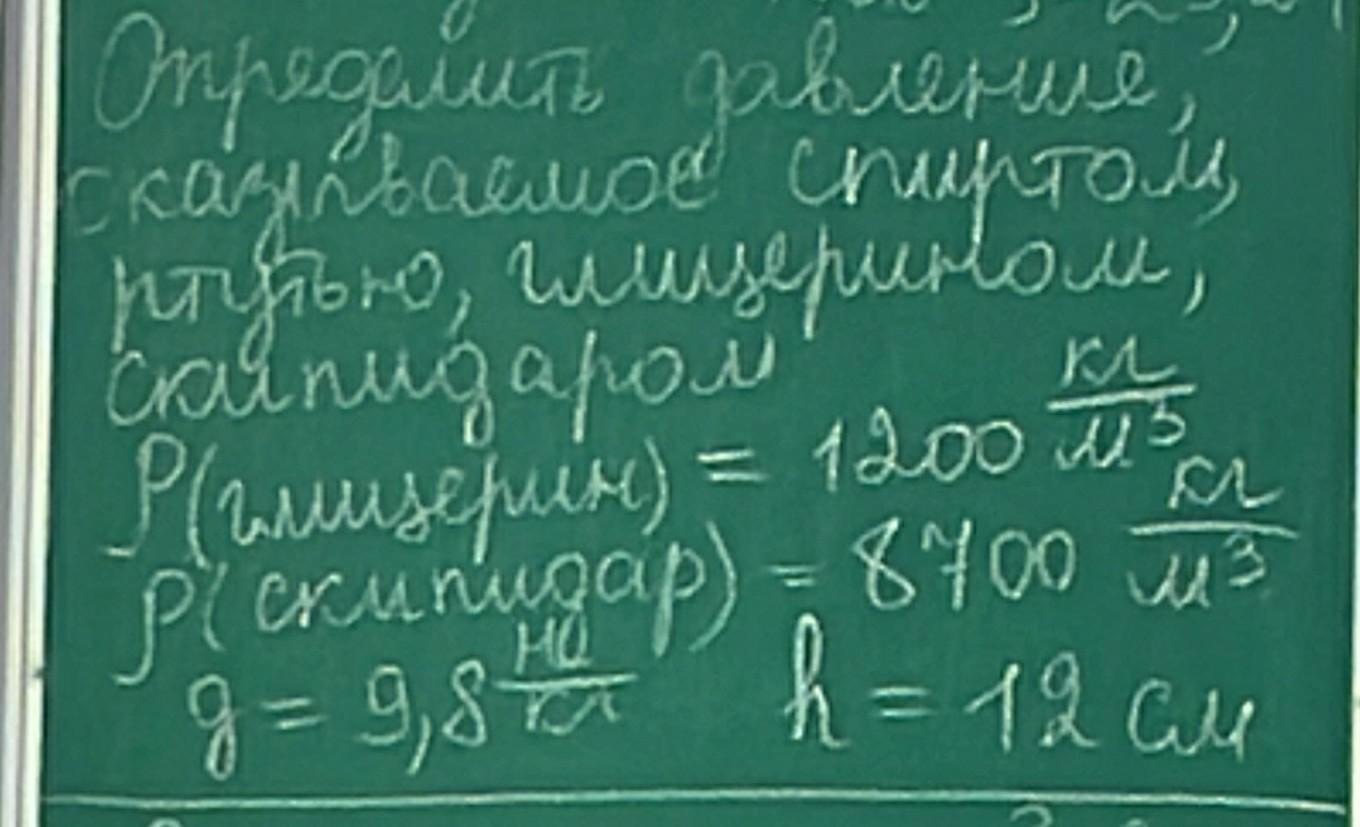 Определить давление,
оказываемое спиртом,
ртутью, глицерином,
скипидаром
ρ(глицерин) = 1200 кг/м³
ρ(скипидар) = 8700 кг/м³
g = 9,8 Н/кг h = 12 см